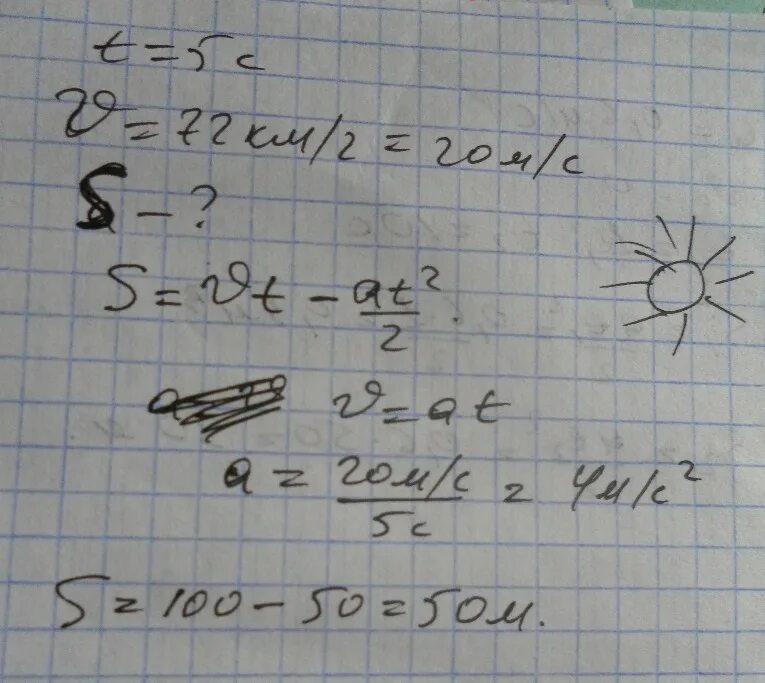 t = 5 c
v = 72 км/г = 20 м/с
S - ?
S = vt - at²/2.
v = at
a = 20 м/с / 5с = 4 м/с²
S = 100 - 50 = 50 м.